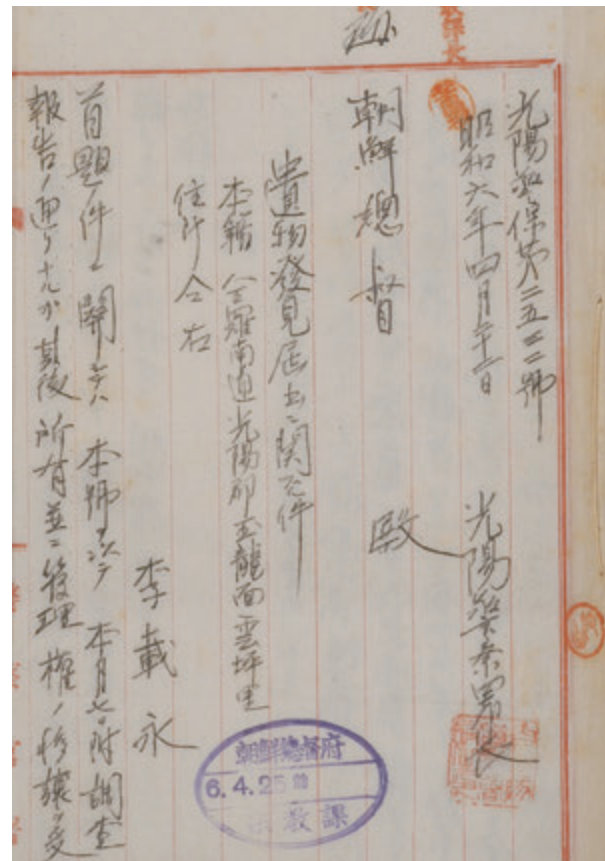 光陽警保第二五二二號
昭和六年四月二十二日
光陽警察署長
朝鮮總督 殿
遺物發見届出ニ関スル件
本籍 全羅南道光陽郡玉龍面雲坪里
住所 仝右
李載永
首題ノ件ニ關シテハ本號ヲ以テ本月七日附調査
報告ノ通リナルガ其後所有並ニ管理權ノ移讓ヲ受
朝鮮總督府
6.4.25
宗教課